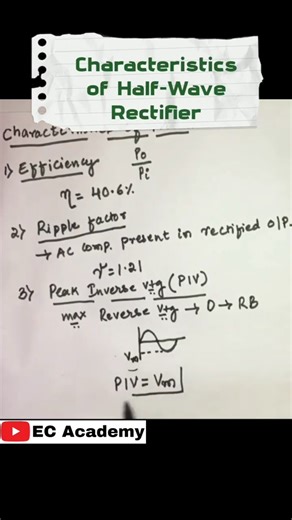 Characteristics
of Half-Wave
Rectifier
1) Efficiency Po/Pi
η = 40.6%
2) Ripple factor
→ AC comp. present in rectified O/P.
γ = 1.21
3) Peak Inverse Vtg (PIV)
max Reverse Vtg → D → RB
Vm
PIV = Vm
EC Academy